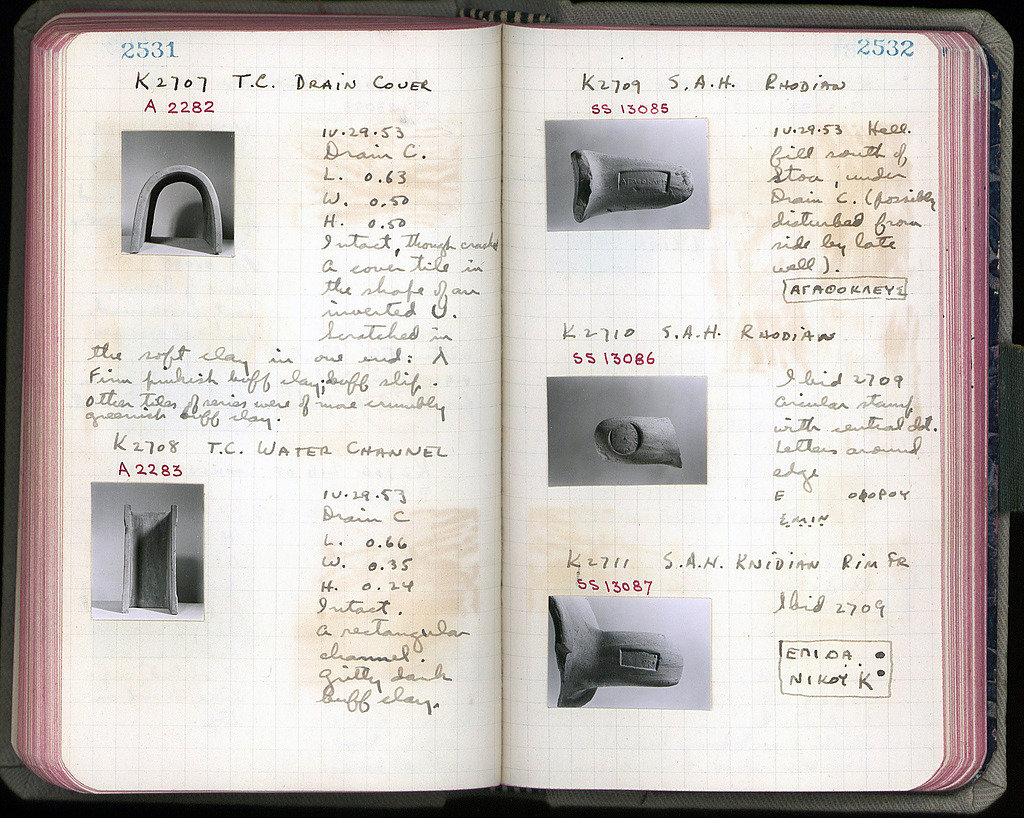 2531
K2707 T.C. DRAIN COVER
A 2282
IV.29.53
Drain C.
L. 0.63
W. 0.50
H. 0.50
Intact, though cracked
A cover tile in
the shape of an
inverted U.
Scratched in
the soft clay in one end: λ
Firm pinkish buff clay; buff slip.
Other tiles of series were of more crumbly
greenish buff clay.
K2708 T.C. WATER CHANNEL
A 2283
IV.29.53
Drain C
L. 0.66
W. 0.35
H. 0.24
Intact.
A rectangular
channel.
Gritty dark
buff clay.
2532
K2709 S.A.H. RHODIAN
SS 13085
IV.29.53 Hell.
fill south of
Stoa, under
Drain C. (possibly
disturbed from
side by late
well).
ΑΓΑΘΟΚΛΕΥΣ
K2710 S.A.H. RHODIAN
SS 13086
Ibid 2709
Circular stamp
with central dot.
Letters around
edge
Ε ΟΦΟΡΟΥ
K2711 S.A.H. KNIDIAN RIM FR
SS 13087
Ibid 2709
ΕΠΙΔΑ
ΝΙΚΟΥ Κ